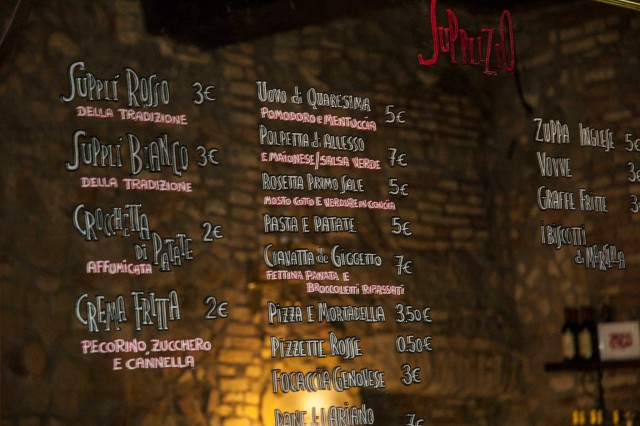 SUPPLIZIO
SUPPLÍ ROSSO 3€
DELLA TRADIZIONE
SUPPLÍ BIANCO 3€
DELLA TRADIZIONE
CROCCHETTA
DI PATATE 2€
AFFUMICATA
CREMA FRITTA 2€
PECORINO, ZUCCHERO
E CANNELLA
UOVO di QUARESIMA 5€
POMODORO E MENTUCCIA
POLPETTA di ALLESSO
E MAIONESE/SALSA VERDE 7€
ROSETTA PRIMO SALE 5€
MOSTO COTTO E VERDURE IN CONCIA
PASTA E PATATE 5€
CIAVATTA de GIGGETTO 7€
FETTINA PANATA E
BROCCOLETTI RIPASSATI
PIZZA E MORTADELLA 3,50€
PIZZETTE ROSSE 0.50€
FOCACCIA GENOVESE 3€
PANE di LARIANO
ZUPPA INGLESE 5€
VOVVE 3
GRAFFE FRITTE 3
i BISCOTTI
di MARSILLA